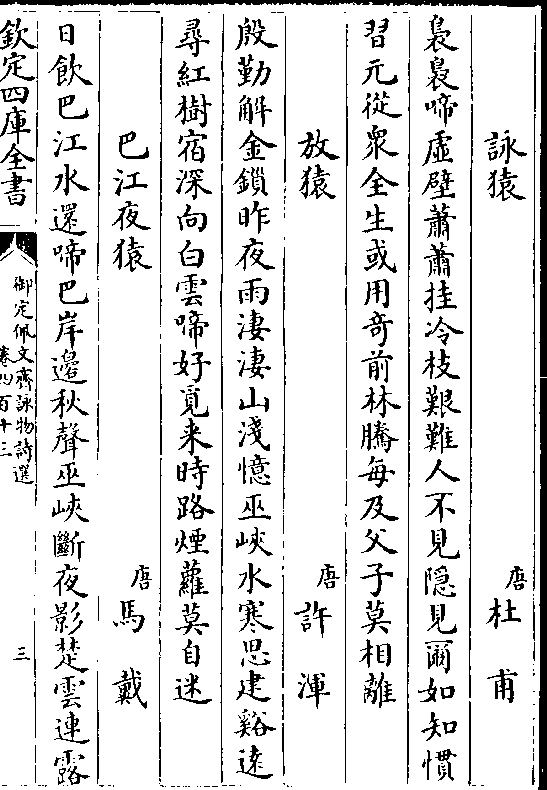 詠猿 唐 杜甫
裊裊啼虛壁蕭蕭挂冷枝艱難人不見隱見爾如知慣
習元從衆全生或用奇前林騰每及父子莫相離
放猿 唐 許渾
殷勤解金鎖昨夜雨淒淒山淺憶巫峽水寒思建谿遠
尋紅樹宿深向白雲啼好覓来時路煙蘿莫自迷
巴江夜猿 唐 馬戴
日飲巴江水還啼巴岸邊秋聲巫峽斷夜影楚雲連露
欽定四庫全書
御定佩文齋詠物詩選
卷四百十三
三